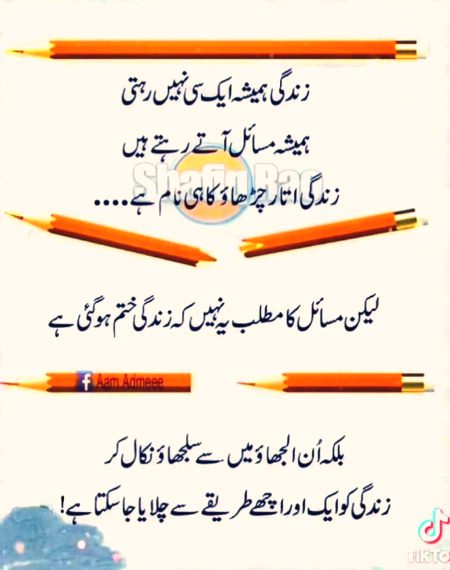 زندگی ہمیشہ ایک سی نہیں رہتی
ہمیشہ مسائل آتے رہتے ہیں
زندگی اتار چڑھاؤ کا ہی نام ہے....
لیکن مسائل کا مطلب یہ نہیں کہ زندگی ختم ہو گئی ہے
Aam Admeee
بلکہ اُن الجھاؤ میں سے سلجھاؤ نکال کر
زندگی کو ایک اور اچھے طریقے سے چلایا جا سکتا ہے!